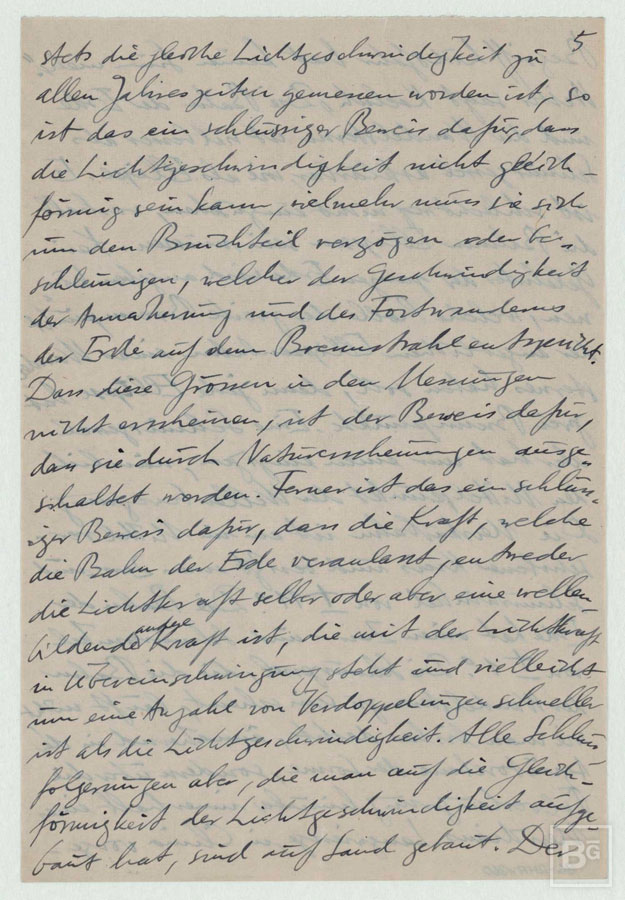 5
stets die gleiche Lichtgeschwindigkeit zu
allen Jahreszeiten gemessen worden ist, so
ist das ein schlüssiger Beweis dafür, dass
die Lichtgeschwindigkeit nicht gleich-
förmig sein kann, vielmehr muss sie sich
um den Bruchteil verzögern oder be-
schleunigen, welcher der Geschwindigkeit
der Annäherung und des Fortwanderns
der Erde auf dem Brennstrahl entspricht.
Dass diese Grössen in den Messungen
nicht erscheinen, ist der Beweis dafür,
dass sie durch Naturerscheinungen ausge-
schaltet werden. Ferner ist das ein schlüss-
iger Beweis dafür, dass die Kraft, welche
die Bahn der Erde veranlasst, entweder
die Lichtkraft selber oder aber eine wellen
bildende andre Kraft ist, die mit der Lichtkraft
in Übereinschwingung steht und vielleicht
um eine Anzahl von Verdoppelungen schneller
ist als die Lichtgeschwindigkeit. Alle Schluss-
folgerungen aber, die man auf die Gleich-
förmigkeit der Lichtgeschwindigkeit aufge-
baut hat, sind auf Sand gebaut. Der
BG